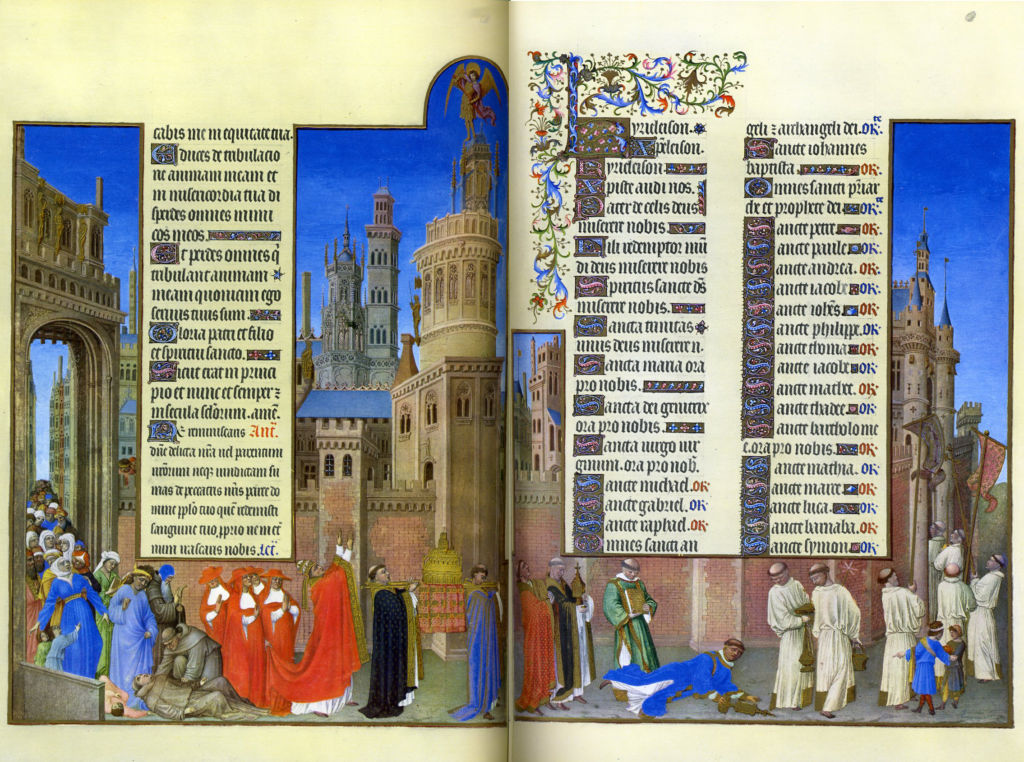 cabis me in equitate tua.
Educes de tribulatio
ne animam meam et
in misericordia tua di
sperdes omnes inimi
cos meos.
Et perdes omnes q̄
tribulant animam
meam quoniam ego
seruus tuus sum.
Gloria patri et filio
et spiritui sancto.
Sicut erat in princi
pio et nunc et semper ⁊
in secula sclorum. amē.
Ne reminiscaris Añ.
dn̄e delicta nr̄a vel parentum
nr̄orum neqȝ uindictam su
mas de peccatis nr̄is parce do
nunc pplo tuo quē redemisti
sanguine tuo pprio ne in et̄
num irascaris nobis. Let̄.
Kyrieleison.
Xp̄eleison.
Kyrieleison
Xpiste audi nos.
Pater de celis deus
miserere nobis.
Fili redemptor mūdi
di deus miserere nobis
Spiritus sancte ds̄
miserere nobis.
Sancta trinitas
unus deus miserere n.
Sancta maria ora
pro nobis.
Sancta dei genitrix
ora pro nobis.
Sancta uirgo uir
ginum. ora pro nob.
Sancte michael. or
Sancte gabriel. or
Sancte raphael. or
Omnes sancti an
geli ⁊ archangeli dei. or.
Sancte iohannes
baptista. or.
Omnes sancti pr̄iar
che et prophete dei. or.
Sancte petre. or.
Sancte paule. or.
Sancte andrea. or.
Sancte iacobe. or.
Sancte ioh̄es. or.
Sancte philippe. or.
Sancte thoma. or.
Sancte iacobe. or.
Sancte mathe. or.
Sancte thadee. or.
Sancte bartholome
e. ora pro nobis. or.
Sancte mathia. or.
Sancte marce. or.
Sancte luca. or.
Sancte barnaba. or.
Sancte symon. or.